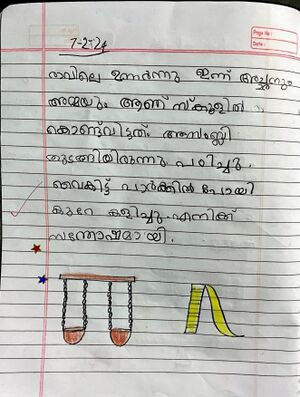 Page No:
Date:
7-2-24
രാവിലെ ഉണർന്നു ഇന്ന് അച്ഛനും
അമ്മയും ആണ് സ്കൂളിൽ
കൊണ്ട്വിട്ടത്. അസംബ്ലി
തുടങ്ങിയിരുന്നു പഠിച്ചു.
വൈകിട്ട് പാർക്കിൽ പോയി
കുറേ കളിച്ചു. എനിക്ക്
സന്തോഷമായി.